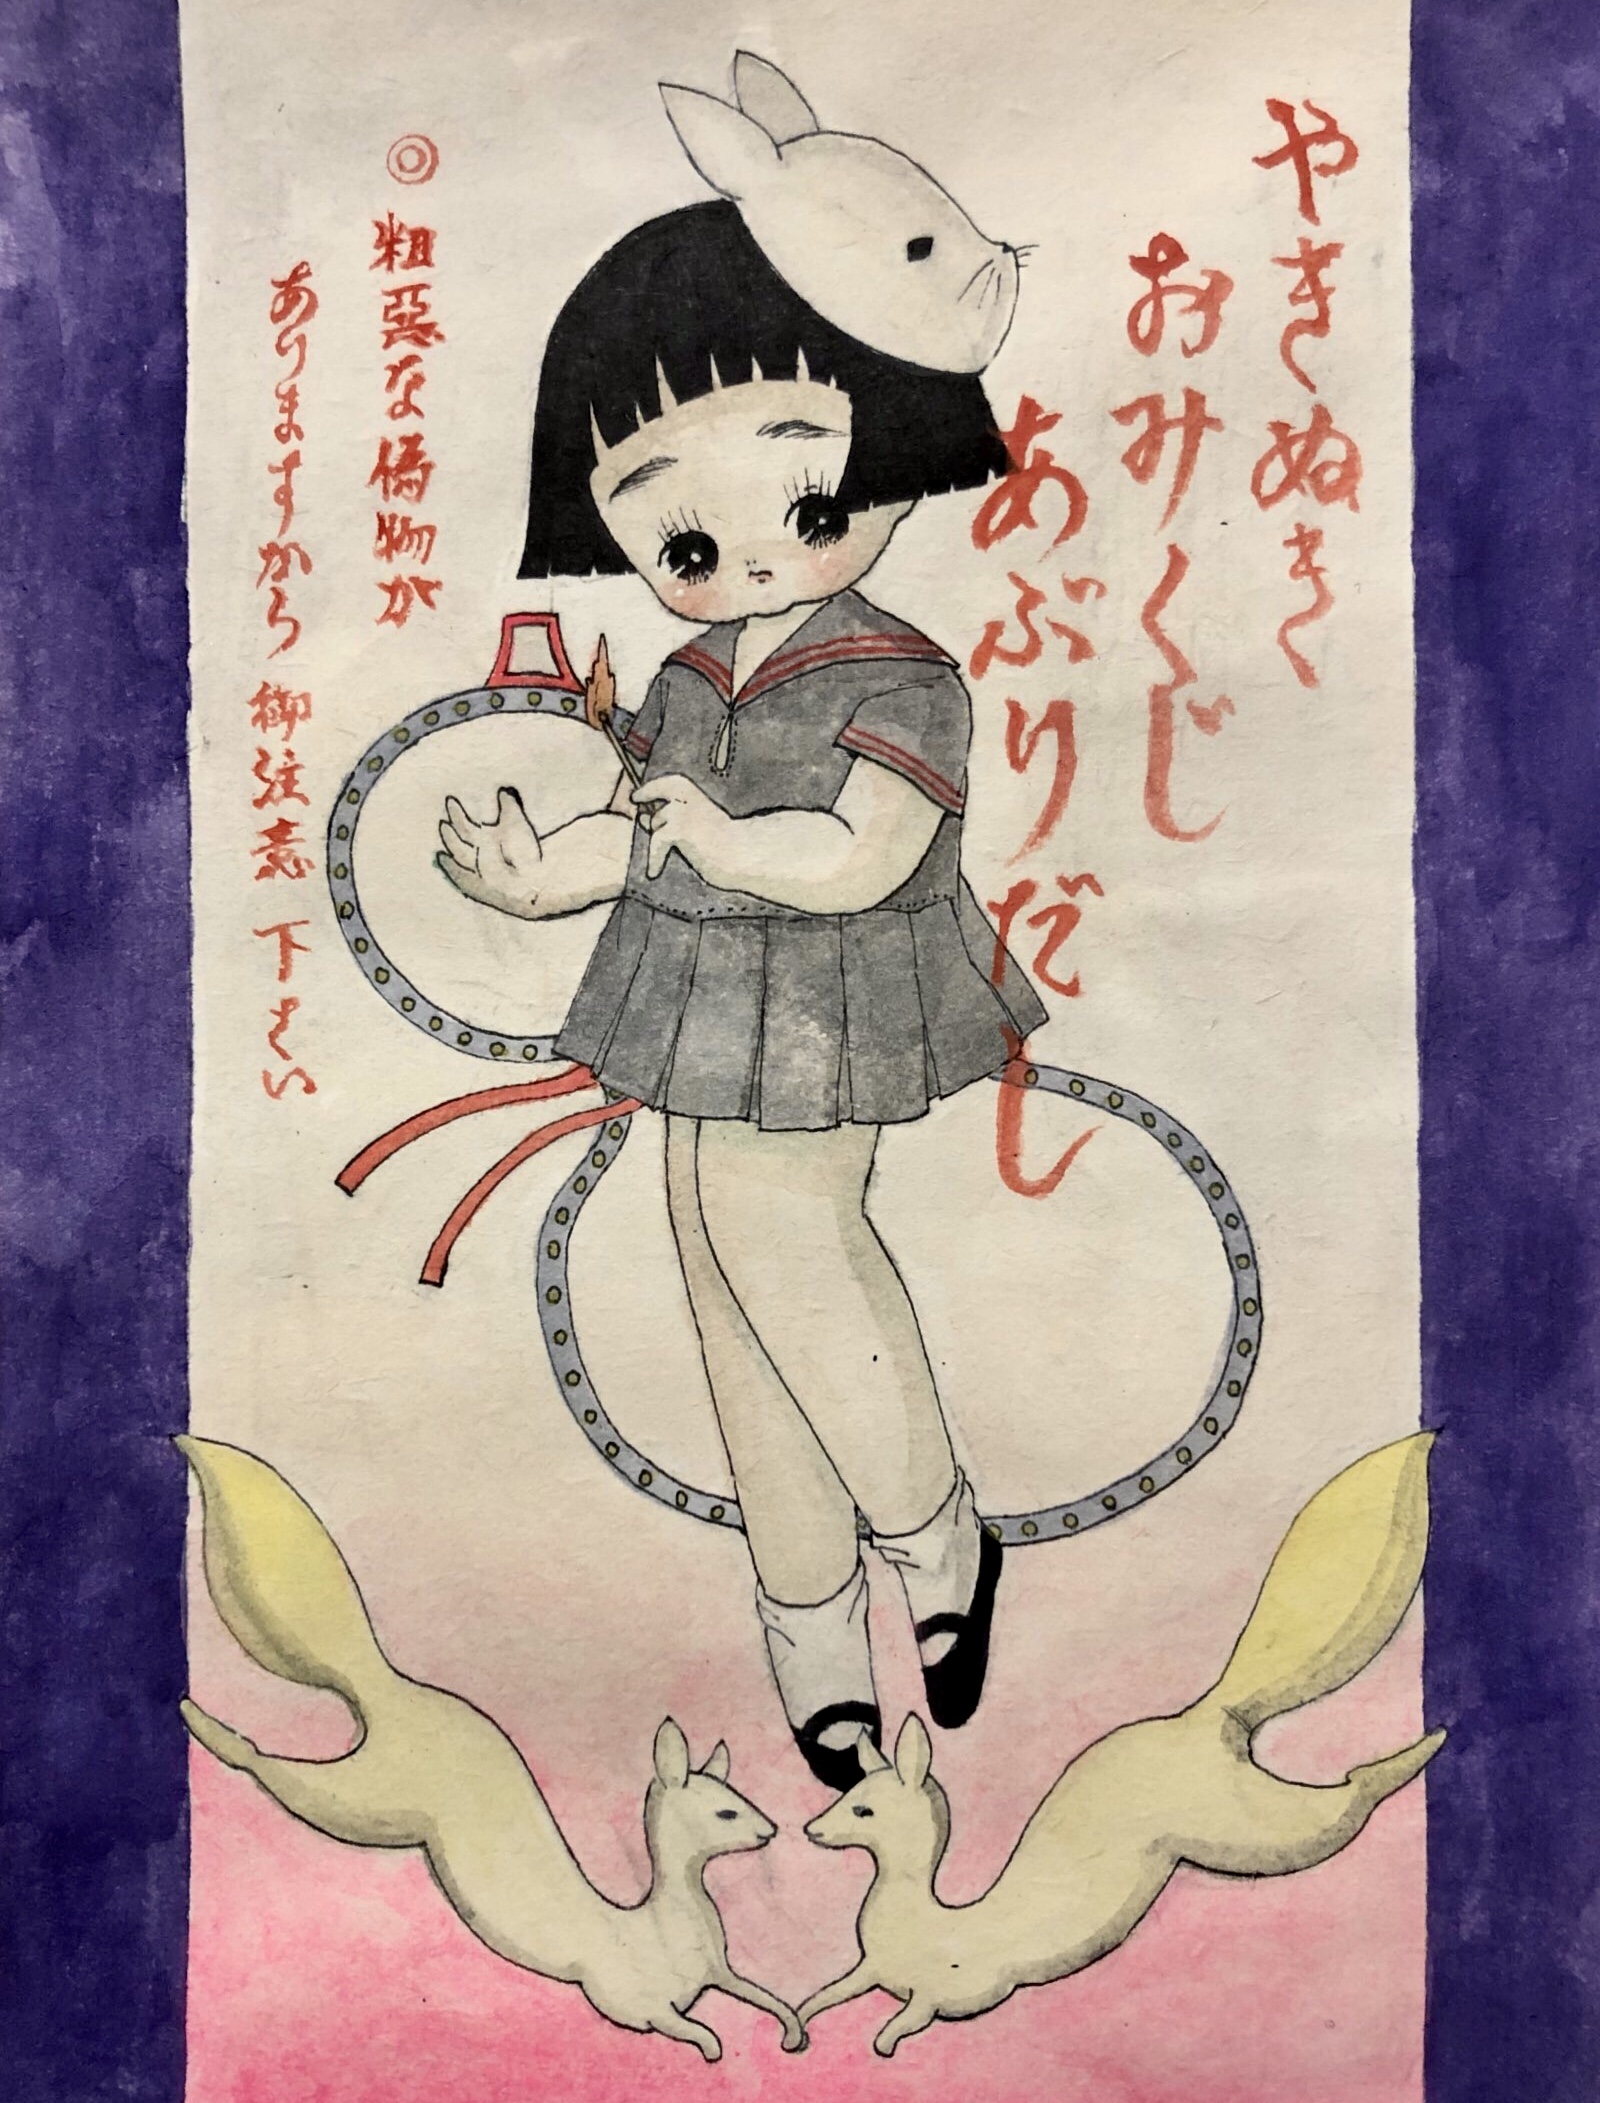 やきぬき
おみくじ
あぶりだし
◎粗惡な偽物が
ありますから御注意下さい